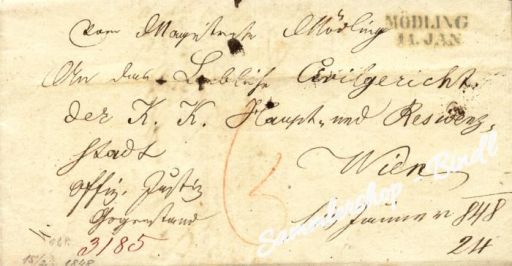 Vom Magistrate Mödling
MÖDLING
11. JAN
An das Löbliche Civilgericht
der K. K. Haupt- und Residenz-
stadt
Wien
Offiz. Justiz
Gegenstand
Jänner 848
3185
24
1848
Sammlershop - Bindl